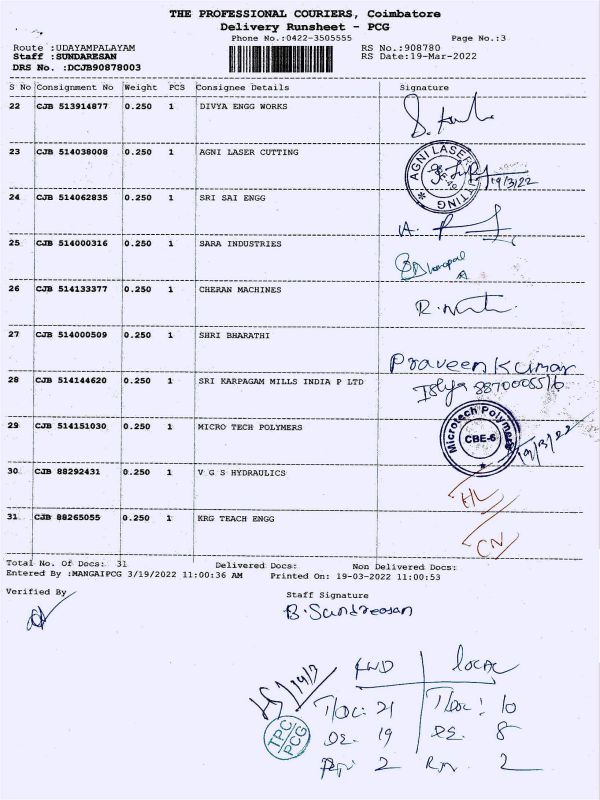 THE PROFESSIONAL COURIERS, Coimbatore
Delivery Runsheet - PCG
Phone No.:0422-3505555 Page No.:3
Route :UDAYAMPALAYAM RS No.:908780
Staff :SUNDARESAN RS Date:19-Mar-2022
DRS No. :DCJB90878003
S No Consignment No Weight PCS Consignee Details Signature
22 CJB 513914877 0.250 1 DIVYA ENGG WORKS
23 CJB 514038008 0.250 1 AGNI LASER CUTTING
AGNI LASER CUTTING 19/3/22
24 CJB 514062835 0.250 1 SRI SAI ENGG
25 CJB 514000316 0.250 1 SARA INDUSTRIES
26 CJB 514133377 0.250 1 CHERAN MACHINES
27 CJB 514000509 0.250 1 SHRI BHARATHI
Praveen Kumar
28 CJB 514144620 0.250 1 SRI KARPAGAM MILLS INDIA P LTD
29 CJB 514151030 0.250 1 MICRO TECH POLYMERS
Microtech Polymers CBE-6 19/3/22
30 CJB 88292431 0.250 1 V G S HYDRAULICS
HL
31 CJB 88265055 0.250 1 KRG TEACH ENGG
CN
Total No. Of Docs: 31 Delivered Docs: Non Delivered Docs:
Entered By :MANGAIPCG 3/19/2022 11:00:36 AM Printed On: 19-03-2022 11:00:53
Verified By Staff Signature
B. Sundreasan
LOCAL
19/3
T/Doc: 21 T/Doc: 10
DE. 19 DE. 8
TPC PCG
2 2